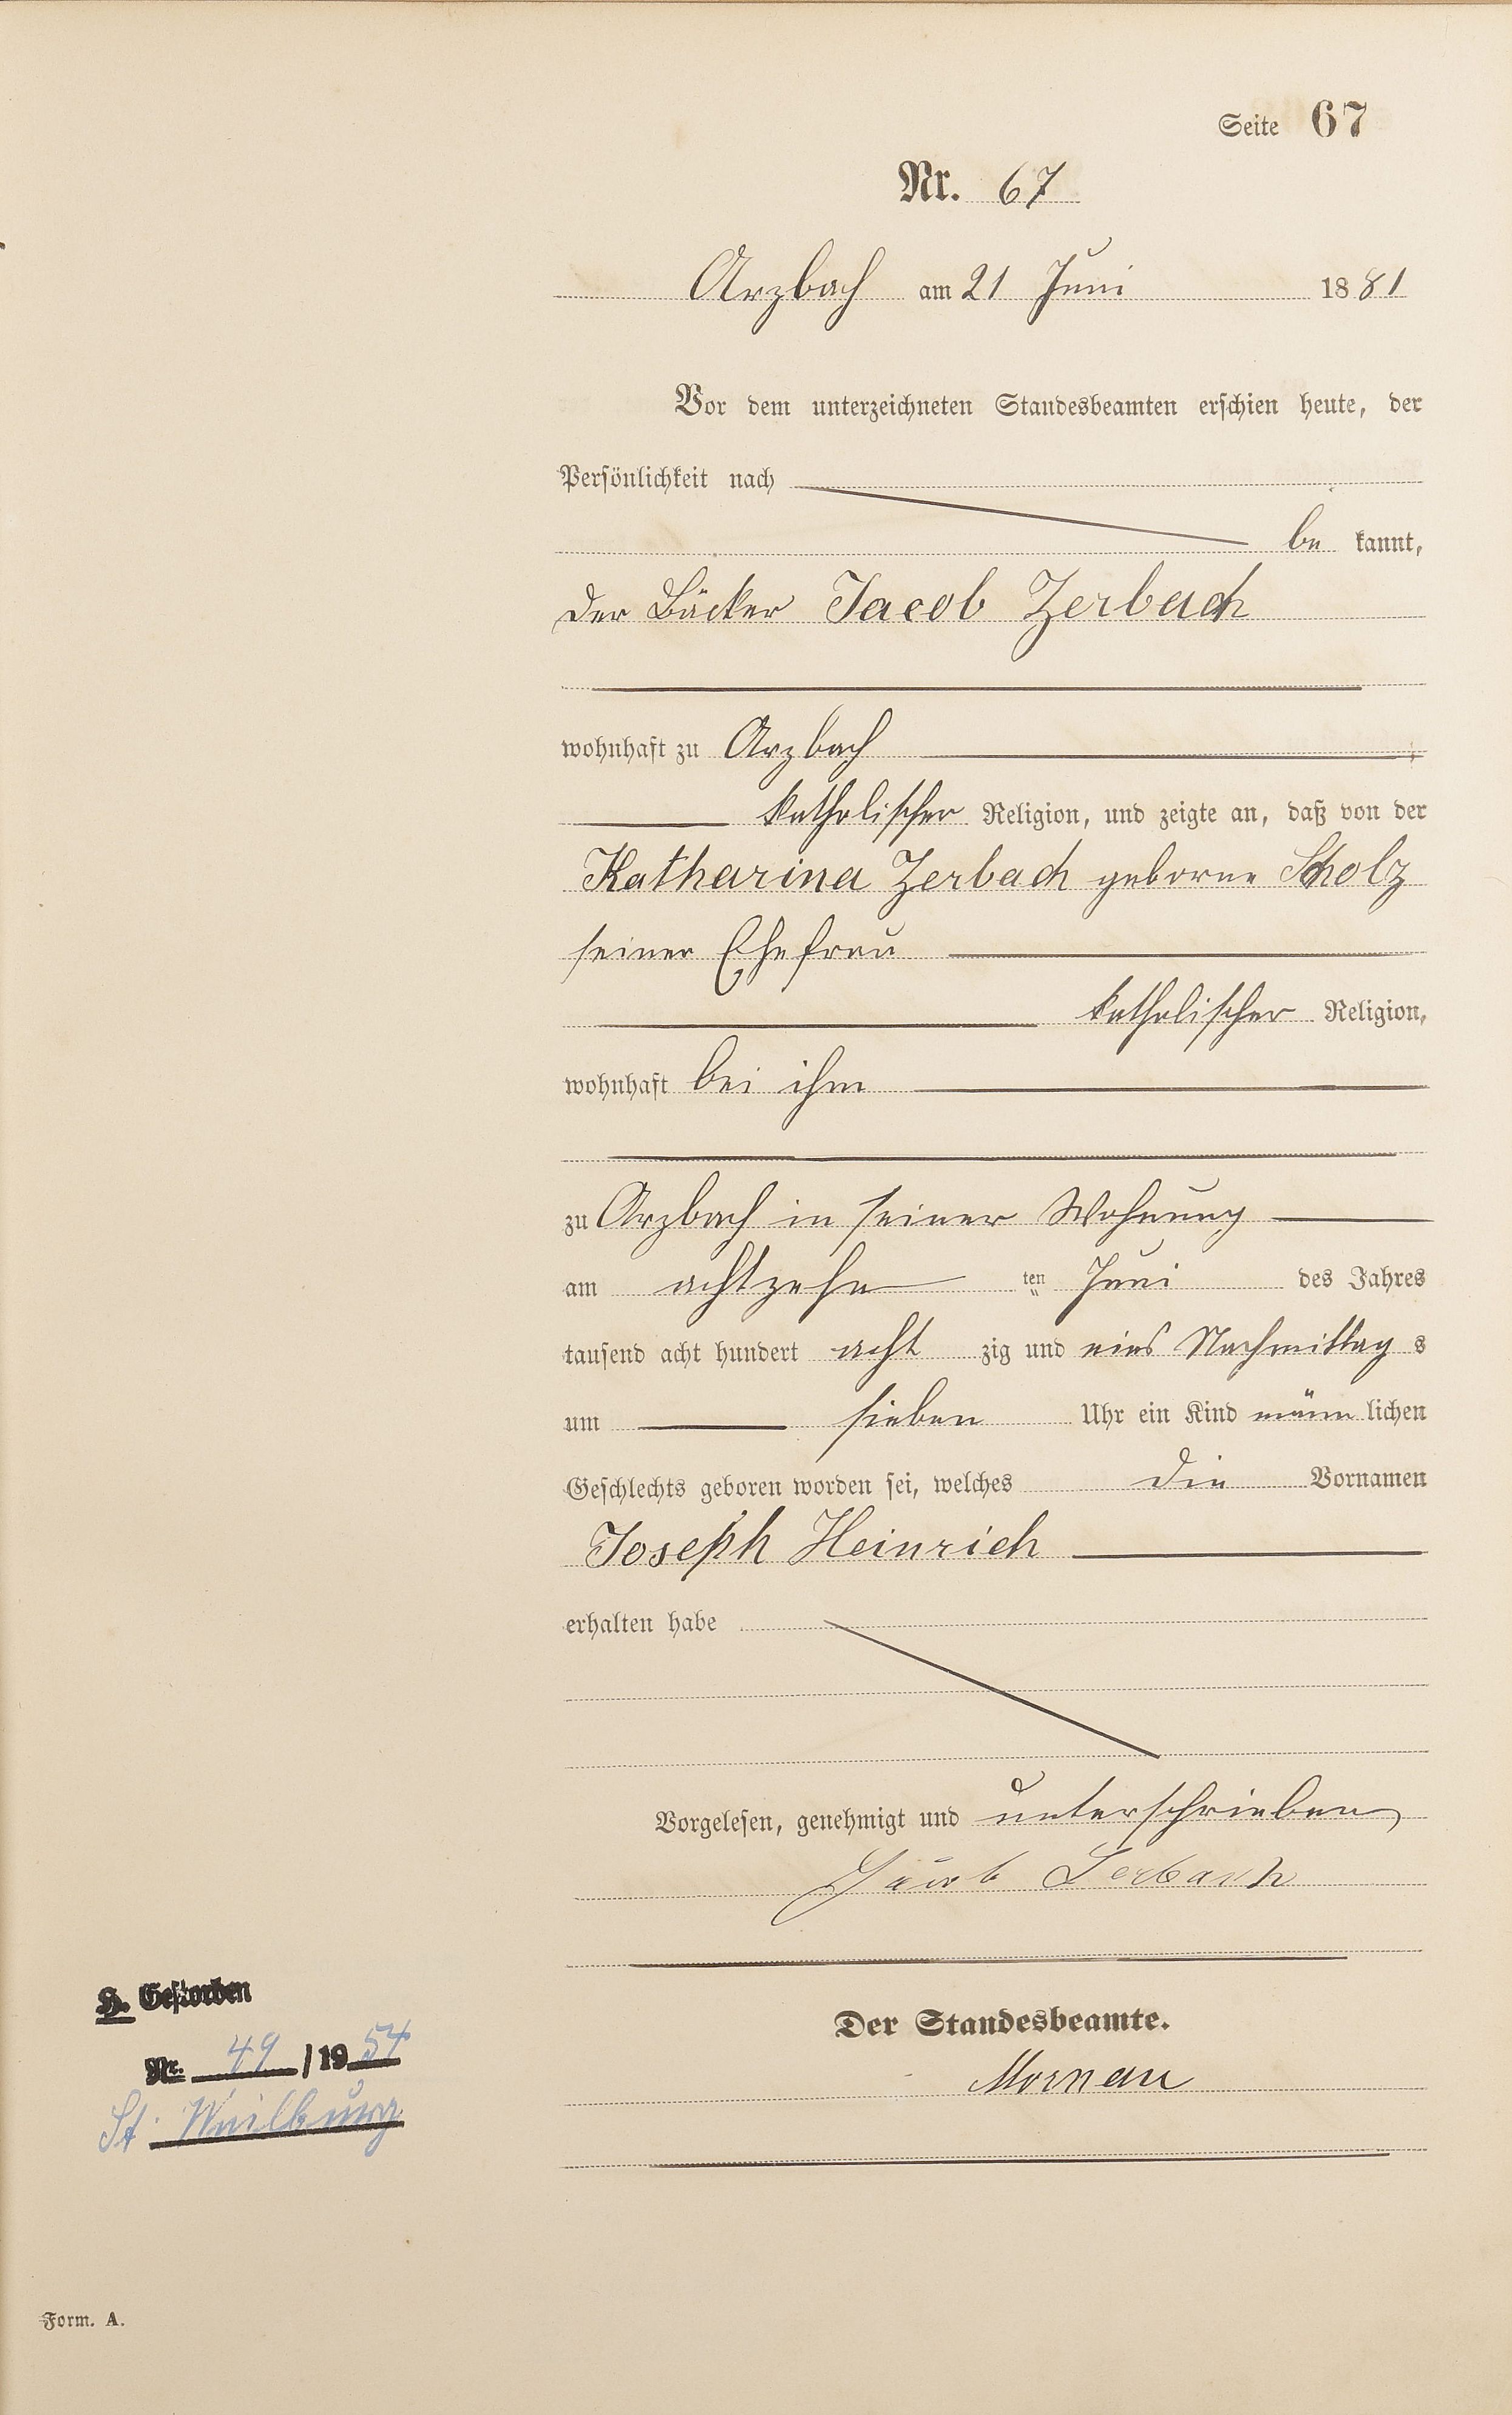 Seite 67
Nr. 67
Arzbach am 21 Juni 1881
Vor dem unterzeichneten Standesbeamten erschien heute, der
Persönlichkeit nach
be kannt,
der Bäcker Jacob Zerbach
wohnhaft zu Arzbach
katholischer Religion, und zeigte an, daß von der
Katharina Zerbach geborne Scholz
seiner Ehefrau
katholischer Religion,
wohnhaft bei ihm
zu Arzbach in seiner Wohnung
am achtzehn ten Juni des Jahres
tausend acht hundert acht zig und eins Nachmittag s
um sieben Uhr ein Kind männ lichen
Geschlechts geboren worden sei, welches die Vornamen
Joseph Heinrich
erhalten habe
Vorgelesen, genehmigt und unterschrieben
Jacob Zerbach
H. Gestorben
Nr. 49 / 1954
St. Weilburg
Der Standesbeamte.
Form. A.